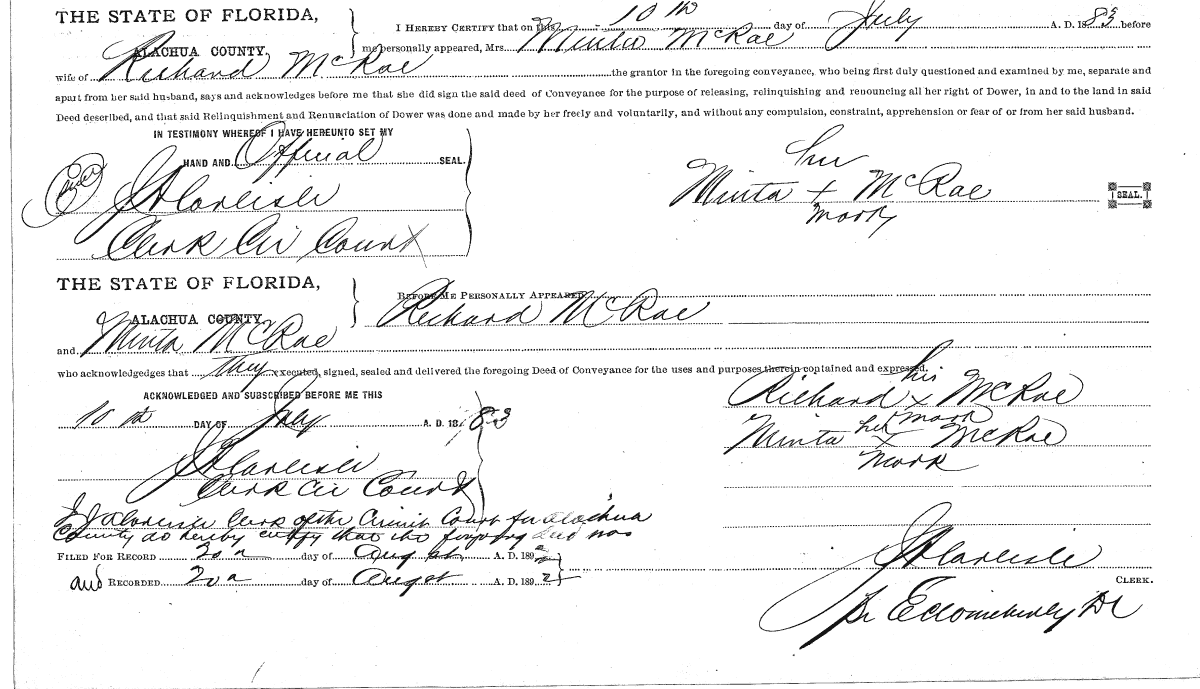 THE STATE OF FLORIDA,
ALACHUA COUNTY,
I HEREBY CERTIFY that on this 10th day of July A. D. 1883 before
me personally appeared, Mrs. Minta McRae
wife of Richard McRae the grantor in the foregoing conveyance, who being first duly questioned and examined by me, separate and
apart from her said husband, says and acknowledges before me that she did sign the said deed of Conveyance for the purpose of releasing, relinquishing and renouncing all her right of Dower, in and to the land in said
Deed described, and that said Relinquishment and Renunciation of Dower was done and made by her freely and voluntarily, and without any compulsion, constraint, apprehension or fear of or from her said husband.
IN TESTIMONY WHEREOF I HAVE HEREUNTO SET MY
HAND AND Official SEAL.
J A Carlisle
Clerk Cir Court
her
Minta + McRae
mark
SEAL.
THE STATE OF FLORIDA,
ALACHUA COUNTY,
BEFORE ME PERSONALLY APPEARED
Richard McRae
and Minta McRae
who acknowledgedges that they executed, signed, sealed and delivered the foregoing Deed of Conveyance for the uses and purposes therein contained and expressed.
ACKNOWLEDGED AND SUBSCRIBED BEFORE ME THIS
10th DAY OF July A. D. 1883
J A Carlisle
Clerk Cir Court
his
Richard x McRae
mark
her
Minta x McRae
mark
I J A Carlisle Clerk of the Circuit Court for Alachua
County do hereby certify that the foregoing deed was
FILED FOR RECORD 20 day of August A. D. 1892
and RECORDED 20 day of August A. D. 1892
J A Carlisle
CLERK.